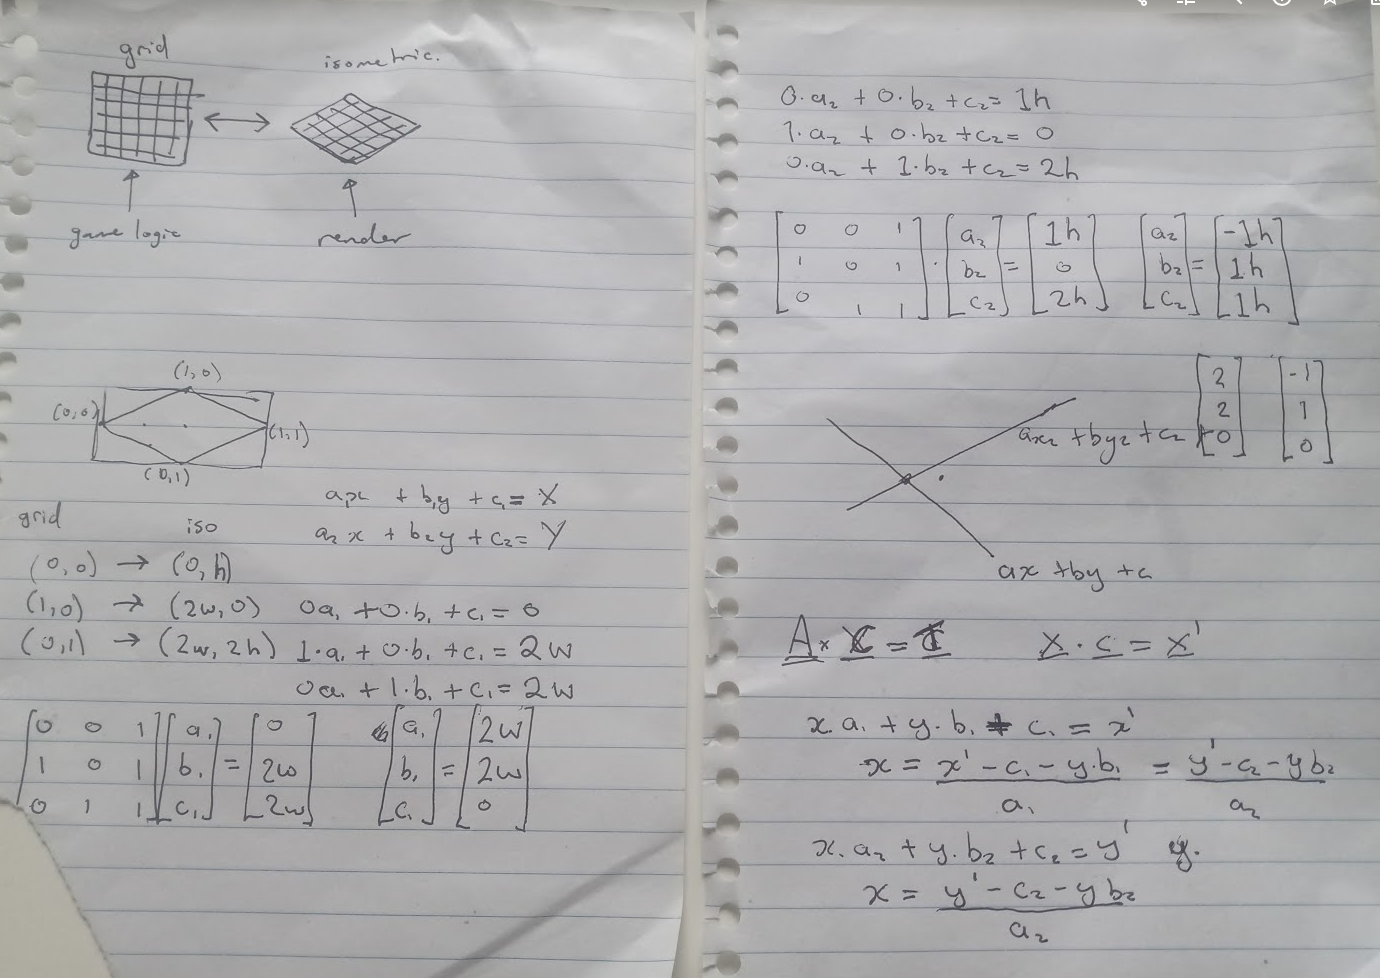 grid
isometric.
game logic
render
(1,0)
(0,0)
(1,1)
(0,1)
a₁x + b₁y + c₁ = X
a₂x + b₂y + c₂ = Y
grid iso
(0,0) → (0,h)
(1,0) → (2w,0) 0a₁ + 0·b₁ + c₁ = 0
(0,1) → (2w,2h) 1·a₁ + 0·b₁ + c₁ = 2w
0a₁ + 1·b₁ + c₁ = 2w
[0 0 1] [a₁] [0] [a₁] [2w]
[1 0 1] [b₁] = [2w] [b₁] = [2w]
[0 1 1] [c₁] [2w] [c₁] [0]
0·a₂ + 0·b₂ + c₂ = 1h
1·a₂ + 0·b₂ + c₂ = 0
0·a₂ + 1·b₂ + c₂ = 2h
[0 0 1] [a₂] [1h] [a₂] [-1h]
[1 0 1] · [b₂] = [0] [b₂] = [1h]
[0 1 1] [c₂] [2h] [c₂] [1h]
[2] [-1]
[2] [1]
[0] [0]
ax₂ + by₂ + c₂
ax + by + c
A × = X · c = x'
x·a₁ + y·b₁ + c₁ = x'
x = (x' - c₁ - y·b₁)/a₁ = (y' - c₂ - yb₂)/a₂
x·a₂ + y·b₂ + c₂ = y' y.
x = (y' - c₂ - yb₂)/a₂